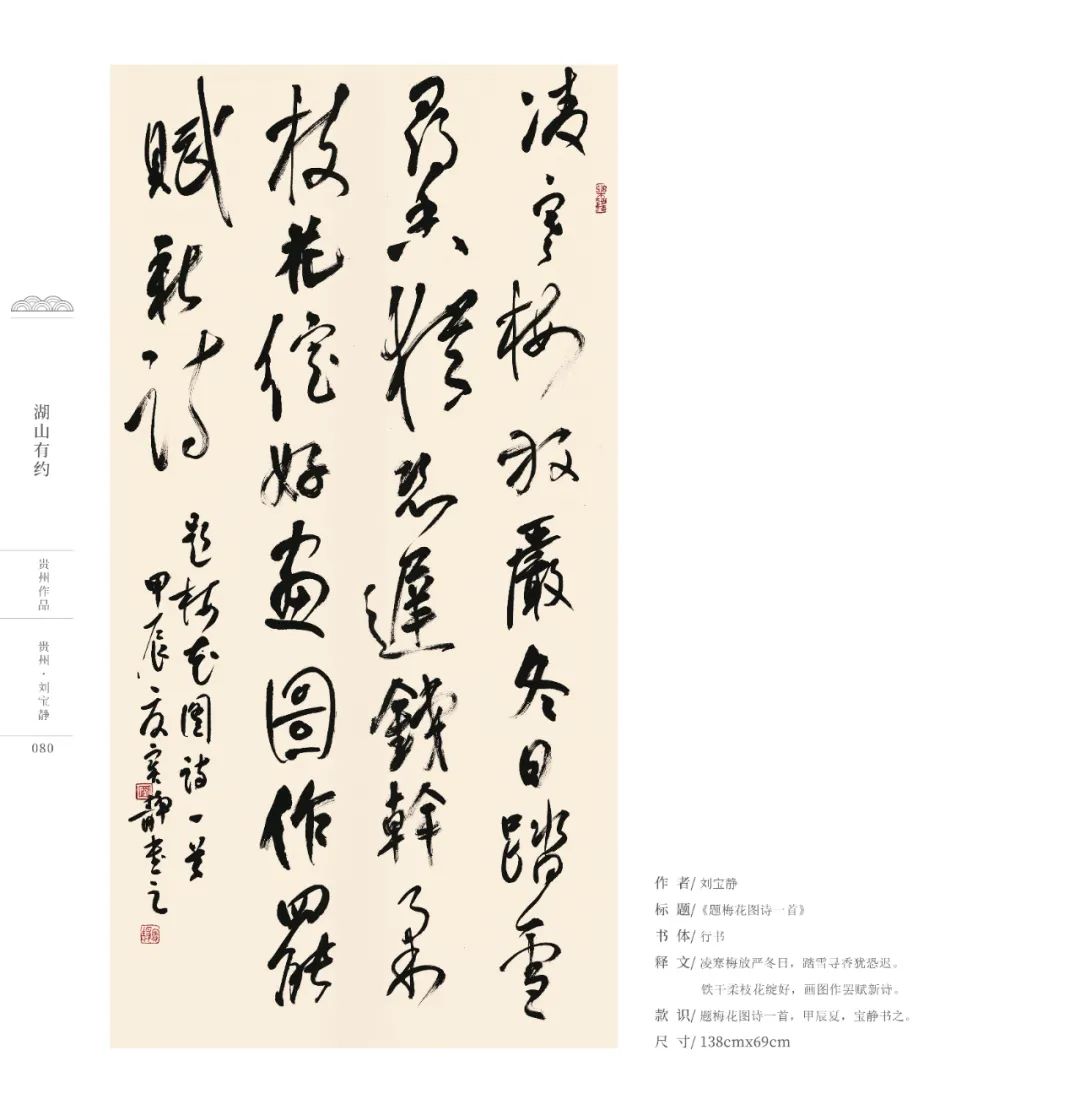 凌寒梅放嚴冬日踏雪
尋香猶恐遲鐵幹柔
枝花綻好畫圖作罷
賦新詩
題梅花圖詩一首
甲辰夏宝靜書之
湖山有约
贵州作品
贵州·刘宝静
080
作 者/ 刘宝静
标 题/《题梅花图诗一首》
书 体/ 行书
释 文/ 凌寒梅放严冬日，踏雪寻香犹恐迟。
铁干柔枝花绽好，画图作罢赋新诗。
款 识/ 题梅花图诗一首，甲辰夏，宝静书之。
尺 寸/ 138cmx69cm